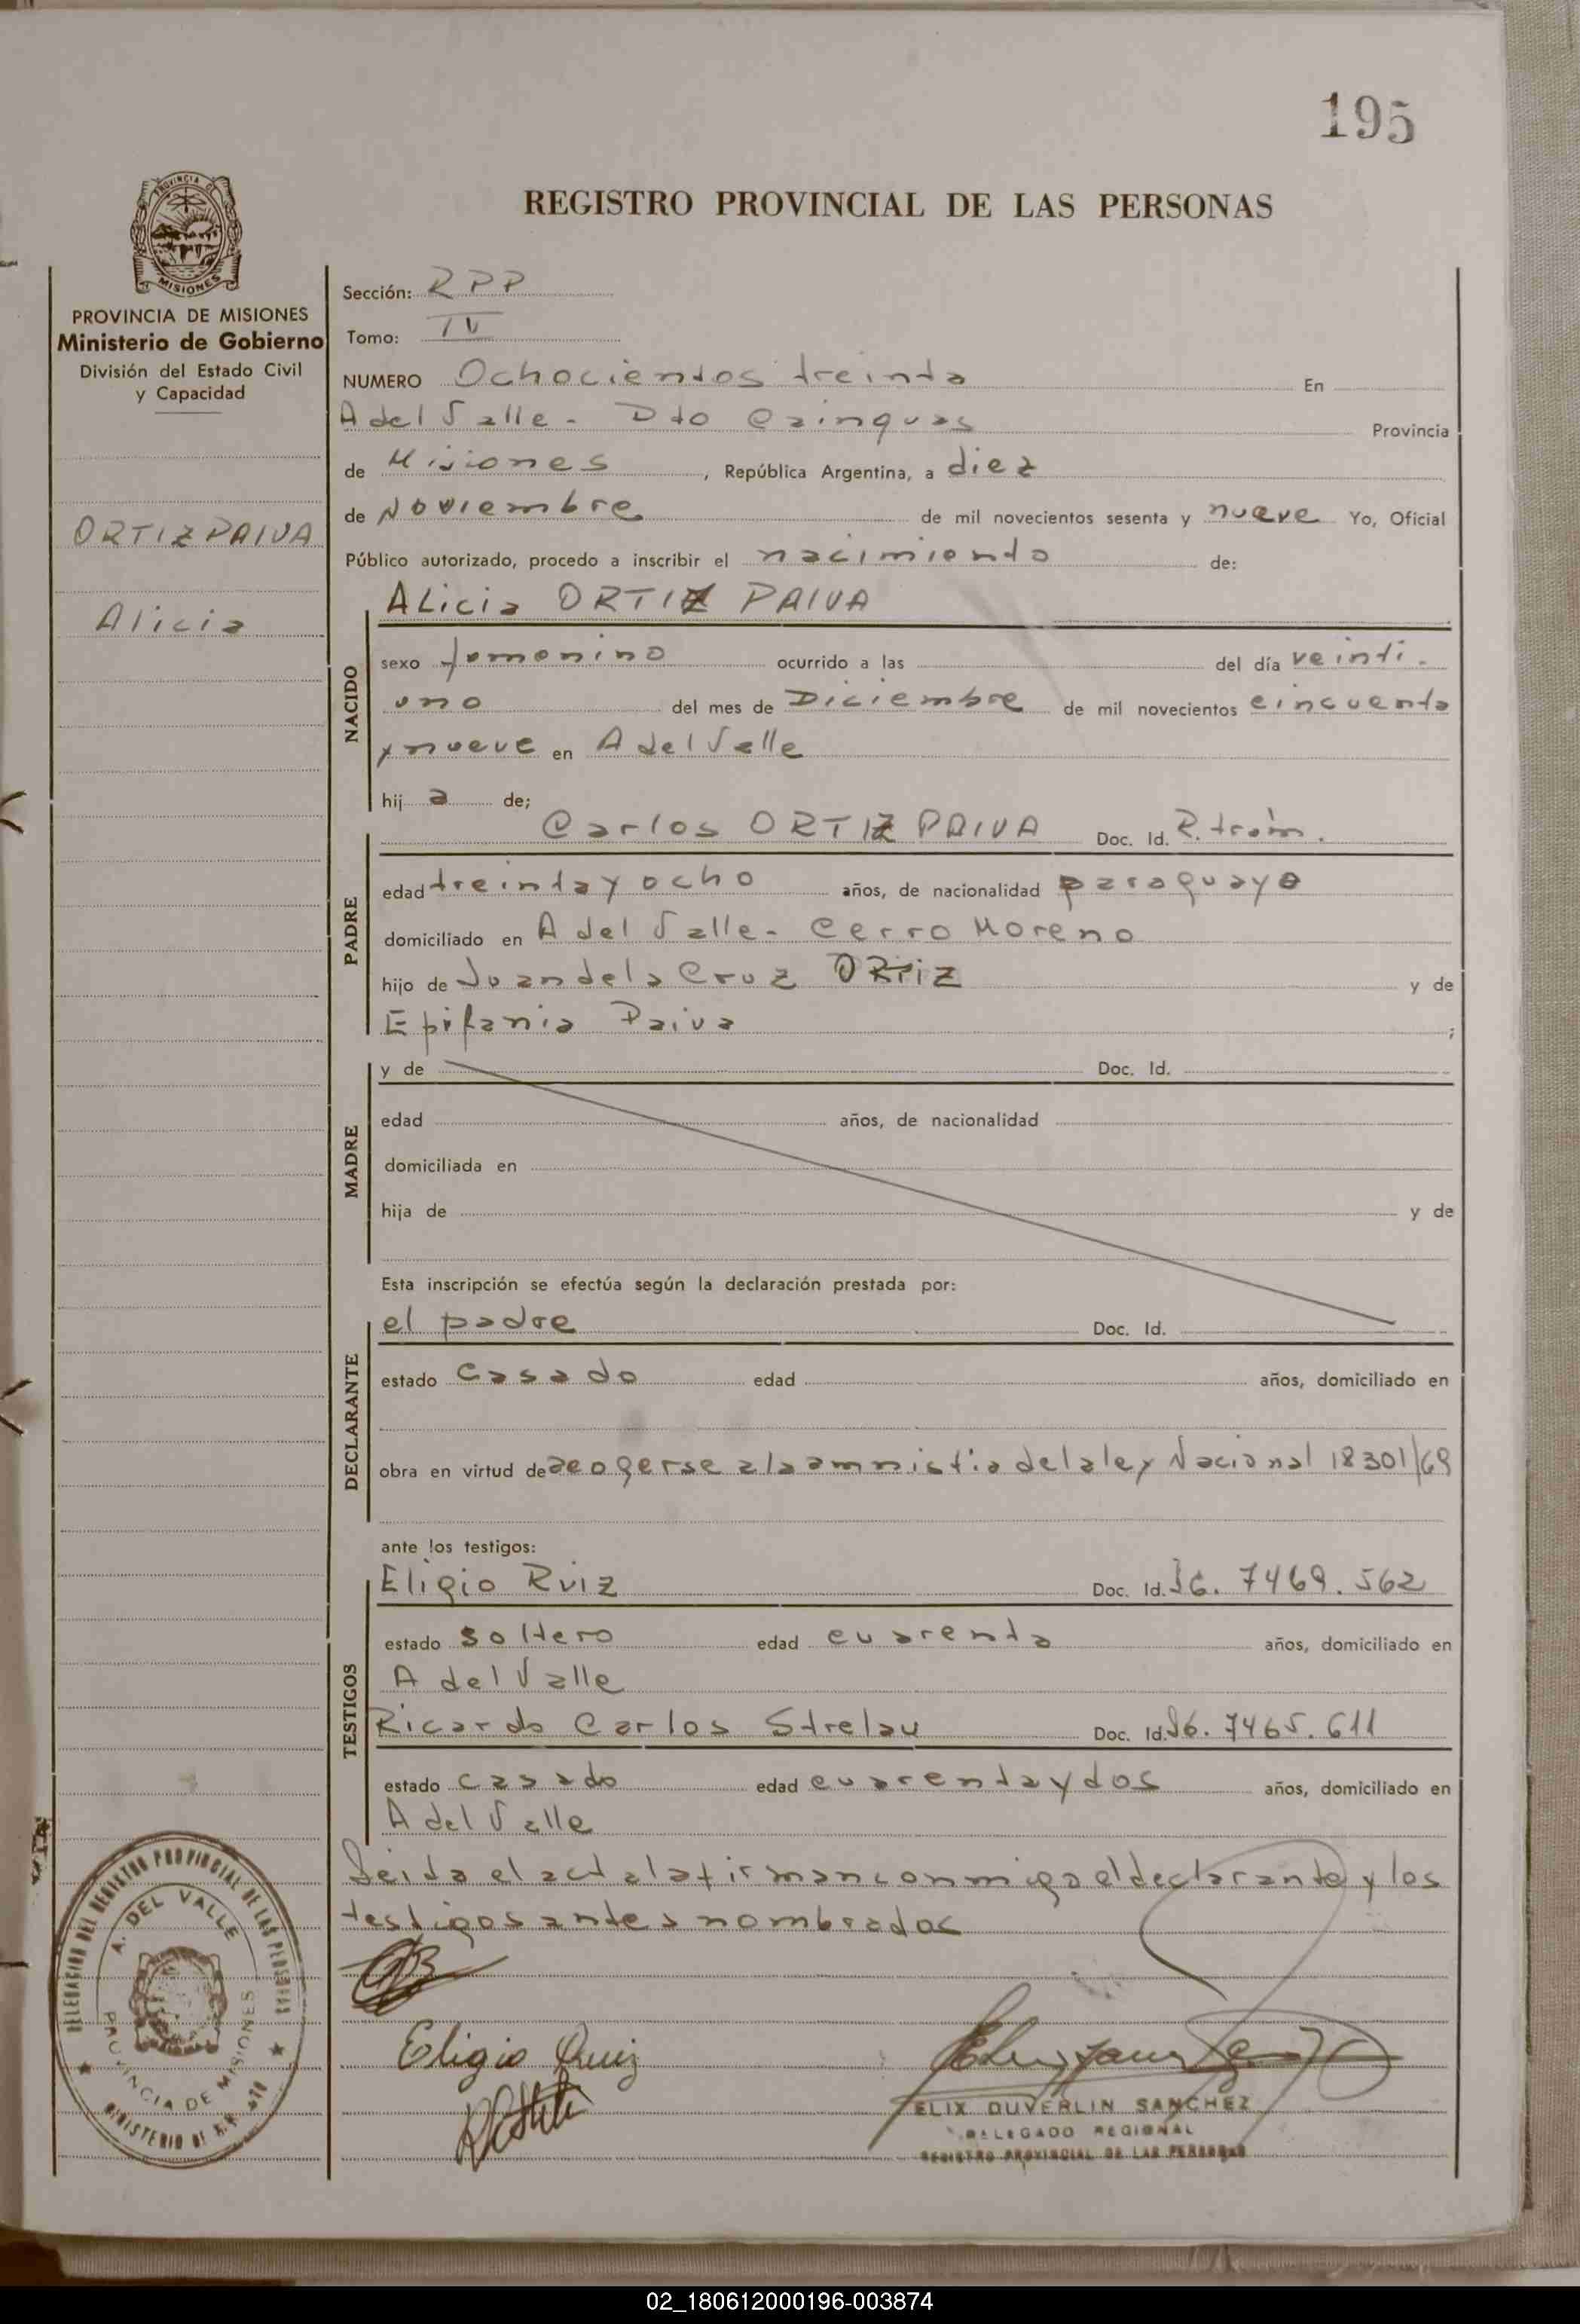 195
REGISTRO PROVINCIAL DE LAS PERSONAS
PROVINCIA DE MISIONES
Ministerio de Gobierno
División del Estado Civil
y Capacidad
ORTIZ PAIVA
Alicia
Sección: RPP
Tomo: IV
NUMERO Ochocientos treinta En
A del Valle - Dto Cainguas Provincia
de Misiones, República Argentina, a diez
de Noviembre de mil novecientos sesenta y nueve Yo, Oficial
Público autorizado, procedo a inscribir el nacimiento de:
Alicia ORTIZ PAIVA
NACIDO
sexo femenino ocurrido a las del día veinti-
uno del mes de Diciembre de mil novecientos cincuenta
y nueve en A del Valle
hija de;
Carlos ORTIZ PAIVA Doc. Id. R. trám.
PADRE
edad treinta y ocho años, de nacionalidad paraguayo
domiciliado en A del Valle - Cerro Moreno
hijo de Juan de la Cruz ORTIZ y de
Epifania Paiva;
MADRE
y de Doc. Id.
edad años, de nacionalidad
domiciliada en
hija de y de
Esta inscripción se efectúa según la declaración prestada por:
el padre Doc. Id.
DECLARANTE
estado casado edad años, domiciliado en
obra en virtud de acogerse a la amnistia de la ley Nacional 18301/69
ante los testigos:
Eligio Ruiz Doc. Id. 7469.562
TESTIGOS
estado soltero edad cuarenta años, domiciliado en
A del Valle
Ricardo Carlos Strelau Doc. Id. 7465.611
estado casado edad cuarenta y dos años, domiciliado en
A del Valle
Leida el acta la firman conmigo el declarante y los
testigos antes nombrados
Eligio Ruiz
ELIX DUVERLIN SANCHEZ
DELEGADO REGIONAL
REGISTRO PROVINCIAL DE LAS PERSONAS
DELEGACION DEL REGISTRO PROVINCIAL DE LAS PERSONAS
A. DEL VALLE
PROVINCIA DE MISIONES
02_180612000196-003874